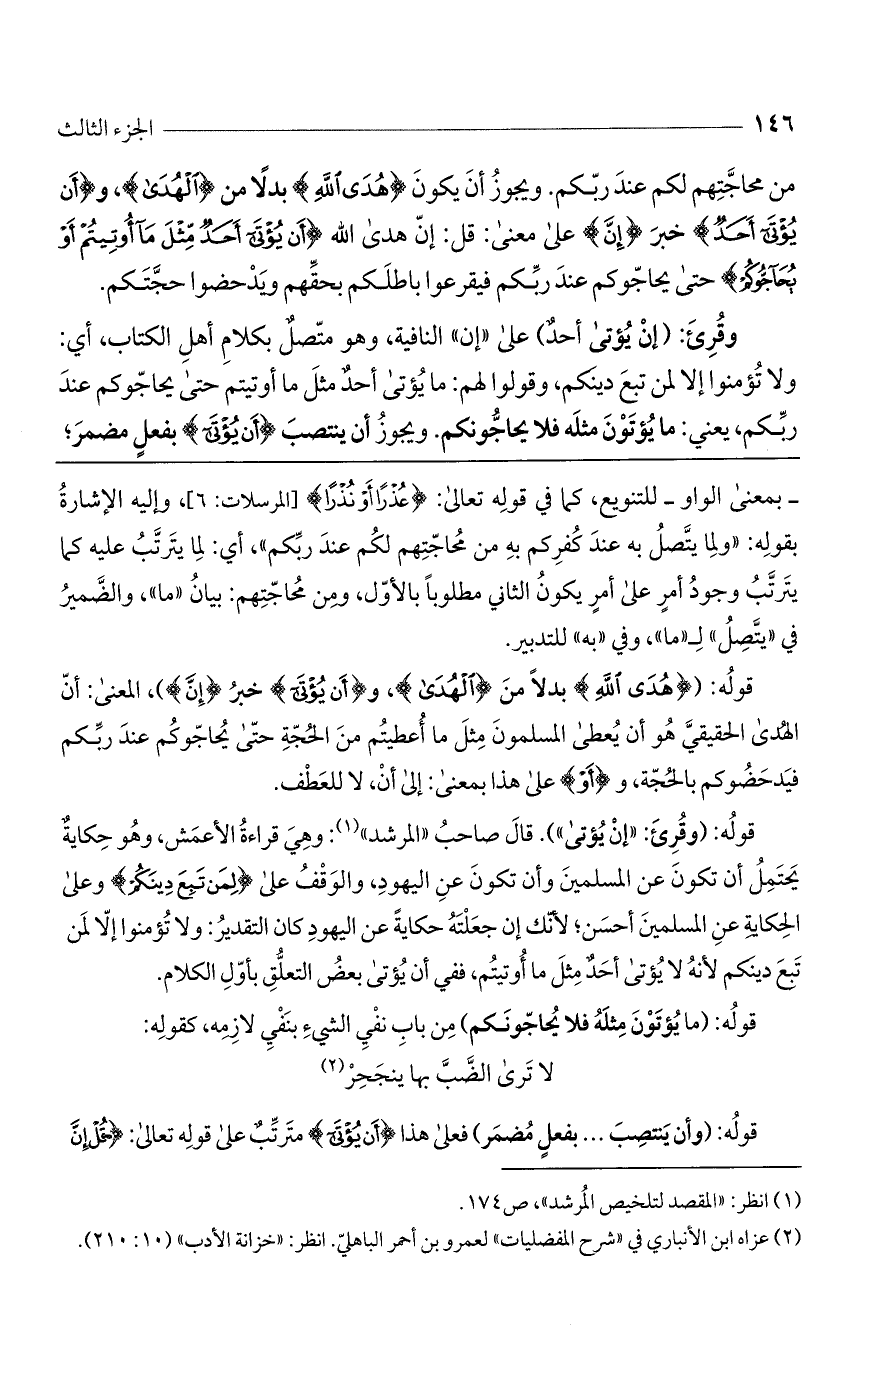 ١٤٦ الجزء الثالث
من محاجَّتِهم لكم عندَ ربّكم. ويجوزُ أنَ يكونَ ﴿هُدَى ٱللَّهِ﴾ بدلًا من ﴿ٱلْهُدَىٰ﴾، و﴿أَن
يُؤْتَىٰٓ أَحَدٌ﴾ خبرَ ﴿إِنَّ﴾ علىٰ معنىٰ: قل: إنّ هدىٰ الله ﴿أَن يُؤْتَىٰٓ أَحَدٌ مِّثْلَ مَآ أُوتِيتُمْ أَوْ
بُحَآجُّوكُمْ﴾ حتىٰ يحاجّوكم عندَ ربِّكم فيقرعوا باطلَكم بحقِّهم ويَدْحضوا حجَّتَكم.
وقُرِئَ: (إنْ يُؤتىٰ أحدٌ) علىٰ «إن» النافية، وهو متّصلٌ بكلامِ أهلِ الكتاب، أي:
ولا تُؤمنوا إلا لمن تبعَ دينَكم، وقولوا لهم: ما يُؤتىٰ أحدٌ مثلَ ما أوتيتم حتىٰ يحاجّوكم عندَ
ربِّكم، يعني: ما يُؤتَوْنَ مثلَه فلا يحاجُّونكم. ويجوزُ أن ينتصبَ ﴿أَن يُؤْتَىٰٓ﴾ بفعلٍ مضمرَ؛
ـ بمعنىٰ الواو ـ للتنويع، كما في قولِه تعالىٰ: ﴿عُذْرًا أَوْ نُذْرًا﴾ [المرسلات: ٦]، وإليه الإشارةُ
بقولِه: «ولِما يتَّصلُ به عندَ كُفرِكم بهِ من مُحاجّتِهم لكُم عندَ ربِّكم»، أي: لِما يَترتَّبُ عليه كما
يترَتَّبُ وجودُ أمرٍ علىٰ أمرٍ يكونُ الثاني مطلوباً بالأوّل، ومِن مُحاجّتِهم: بيانُ «ما»، والضَّميرُ
في «يتَّصِلُ» لِـ«ما»، وفي «به» للتدبير.
قولُه: (﴿هُدَى ٱللَّهِ﴾ بدلاً منَ ﴿ٱلْهُدَىٰ﴾، و﴿أَن يُؤْتَىٰٓ﴾ خبرُ ﴿إِنَّ﴾)، المعنىٰ: أنّ
الهُدىٰ الحقيقيَّ هُو أن يُعطىٰ المسلمونَ مِثلَ ما أُعطيتُم منَ الحُجّةِ حتّىٰ يُحاجّوكُم عندَ ربِّكم
فيَدحَضُوكم بالحُجّة، و ﴿أَوْ﴾ علىٰ هذا بمعنىٰ: إلىٰ أنْ، لا للعَطْف.
قولُه: (وقُرِئَ: «إنْ يُؤتىٰ»). قالَ صاحبُ «المرشد»(١): وهِيَ قراءةُ الأعمَش، وهُو حِكايةٌ
يَحتَمِلُ أن تكونَ عن المسلمينَ وأن تكونَ عنِ اليهودِ، والوَقْفُ علىٰ ﴿لِمَن تَبِعَ دِينَكُمْ﴾ وعلىٰ
الحِكايةِ عنِ المسلمينَ أحسَن؛ لأنّك إن جعَلْتَهُ حكايةً عن اليهودِ كان التقديرُ: ولا تُؤمنوا إلّا لمن
تَبِعَ دينَكم لأنهُ لا يُؤتىٰ أحَدٌ مِثلَ ما أُوتيتُم، ففي أن يُؤتىٰ بعضُ التعلُّقِ بأوّلِ الكلام.
قولُه: (ما يُؤتَوْنَ مِثلَهُ فلا يُحاجّونَكم) مِن بابِ نفْيِ الشيءِ بنَفْيِ لازِمِه، كقولِه:
لا تَرىٰ الضَّبَّ بها ينجَحِرْ(٢)
قولُه: (وأن يَنتصِبَ ... بفعلٍ مُضمَر) فعلىٰ هذا ﴿أَن يُؤْتَىٰٓ﴾ مترتِّبٌ علىٰ قولِه تعالىٰ: ﴿قُلْ إِنَّ
(١) انظر: «المقصد لتلخيص المُرشد»، ص١٧٤.
(٢) عزاه ابن الأنباري في «شرح المفضليات» لعمرو بن أحمر الباهليّ. انظر: «خزانة الأدب» (١٠: ٢١٠).